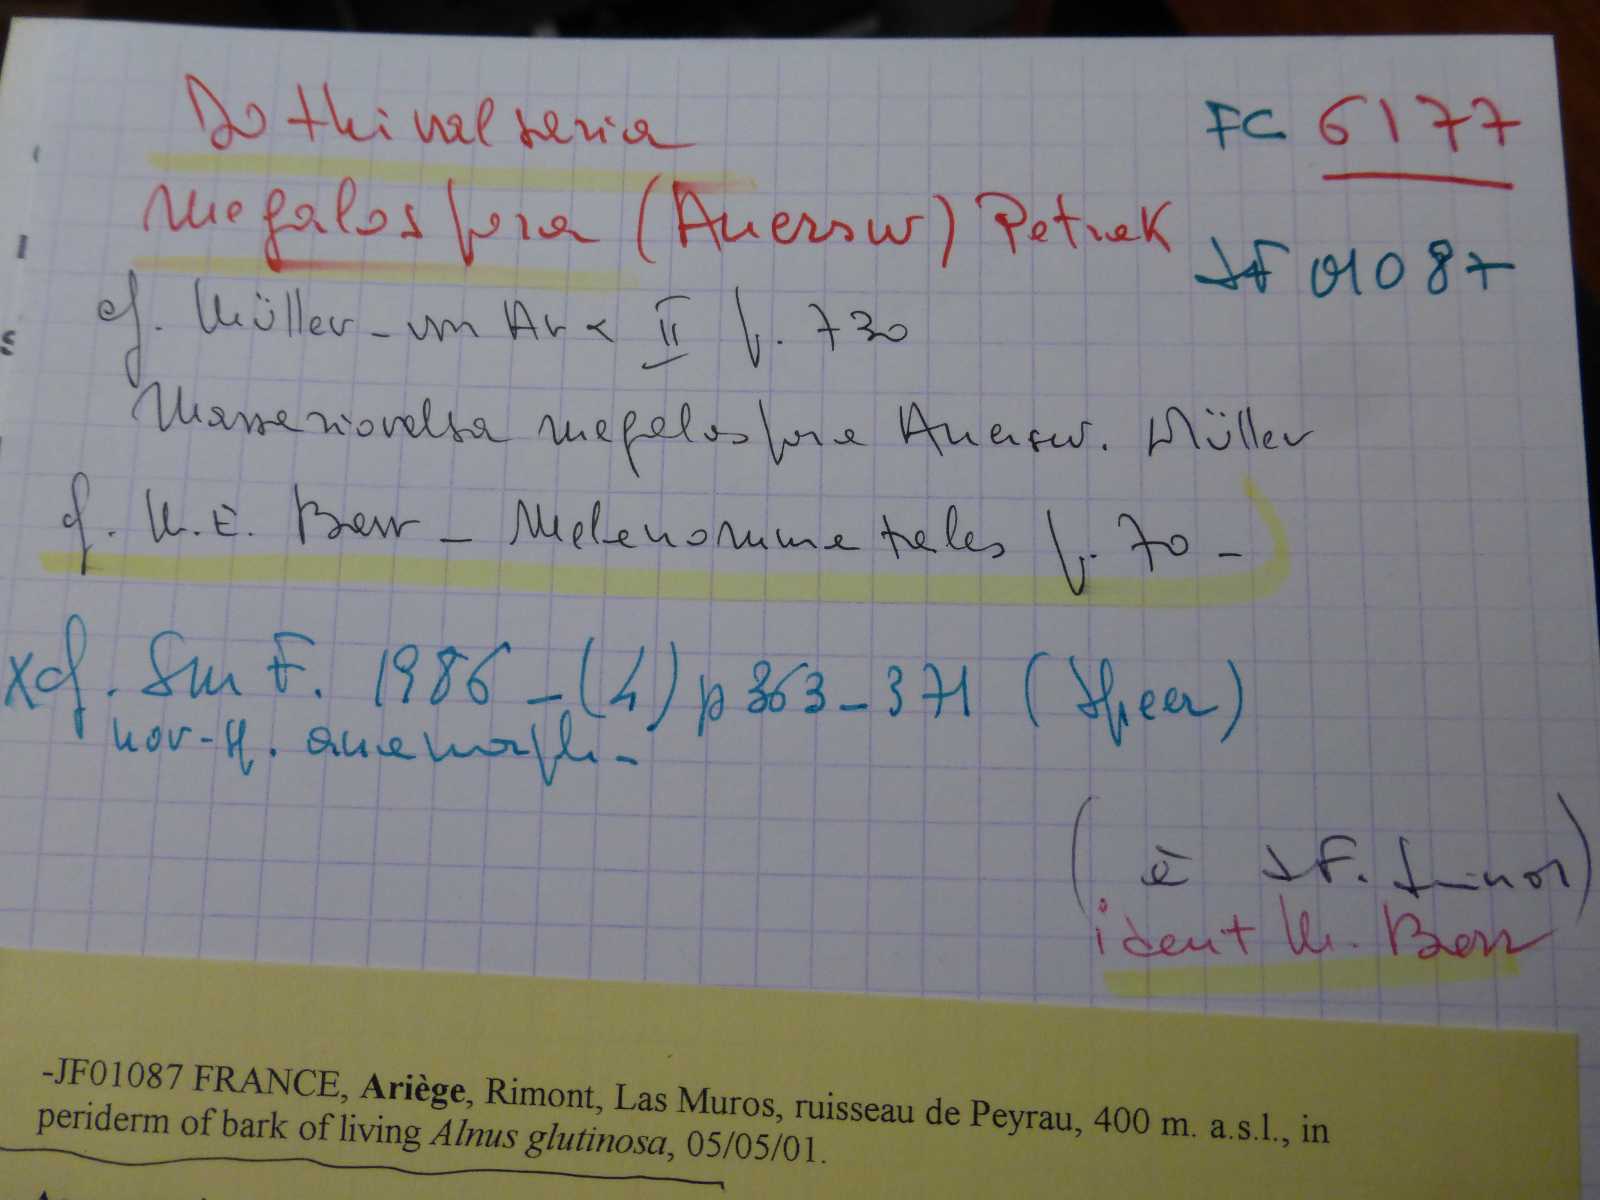 Dothivalseria FC 6177
megalospora (Auersw) Petrak JF 01087
cf. Müller - von Arx II p. 730
Massariovalsa megalospora Auersw. Müller
cf. M. E. Barr - Melanommatales p. 70 -
x cf. SMF. 1986 - (4) p 363 - 371 (Speer)
nov-sp. anamorph -
(à JF.
ident M. Barr
-JF01087 FRANCE, Ariège, Rimont, Las Muros, ruisseau de Peyrau, 400 m. a.s.l., in
periderm of bark of living Alnus glutinosa, 05/05/01.